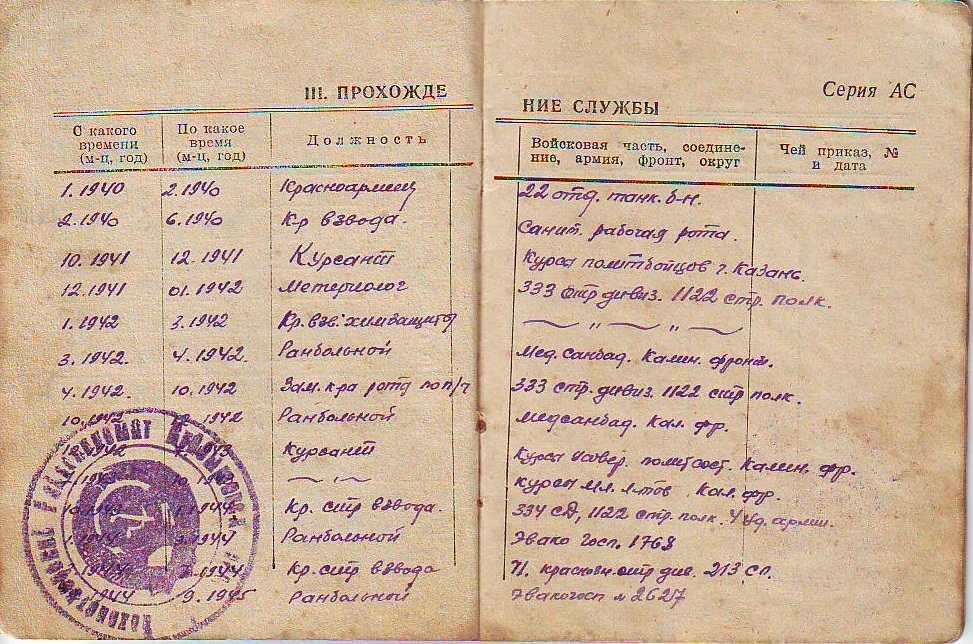 III. ПРОХОЖДЕ
НИЕ СЛУЖБЫ
Серия АС
С какого времени (м-ц, год) По какое время (м-ц, год) Должность Войсковая часть, соединение, армия, фронт, округ Чей приказ, № и дата
1.1940 2.1940 Красноармеец 22 отд. танк. б-н.
2.1940 6.1940 К-р взвода. Санит. рабочая рота.
10.1941 12.1941 Курсант Курса политбойцов г. Казань.
12.1941 01.1942 Метериолог 333 стр дивиз. 1122 стр. полк.
1.1942 3.1942 Кр. взв. химзащиты — „ — „ —
3.1942. 4.1942. Ранбольной Мед. санбад. Калин. фронт.
4.1942. 10.1942 Зам. к-ра роты по п/ч 333 стр. дивиз. 1122 стр полк.
10.1942 1942 Ранбольной Медсанбад. Кал. фр.
1942 Курсант Курса усовер. политсост. Калин. фр.
— „ — курсы мл. л-тов. Кал. фр.
1944 Кр. стр взвода. 334 СД, 1122 стр. полк. 4 уд. армии.
1.1944 1944 Ранбольной Эвако госп. 1768
1944 1944 Кр. стр взвода 71. краснозн. стр див. 213 сп.
1944 9.1945 Ранбольной Эвакогосп № 2627